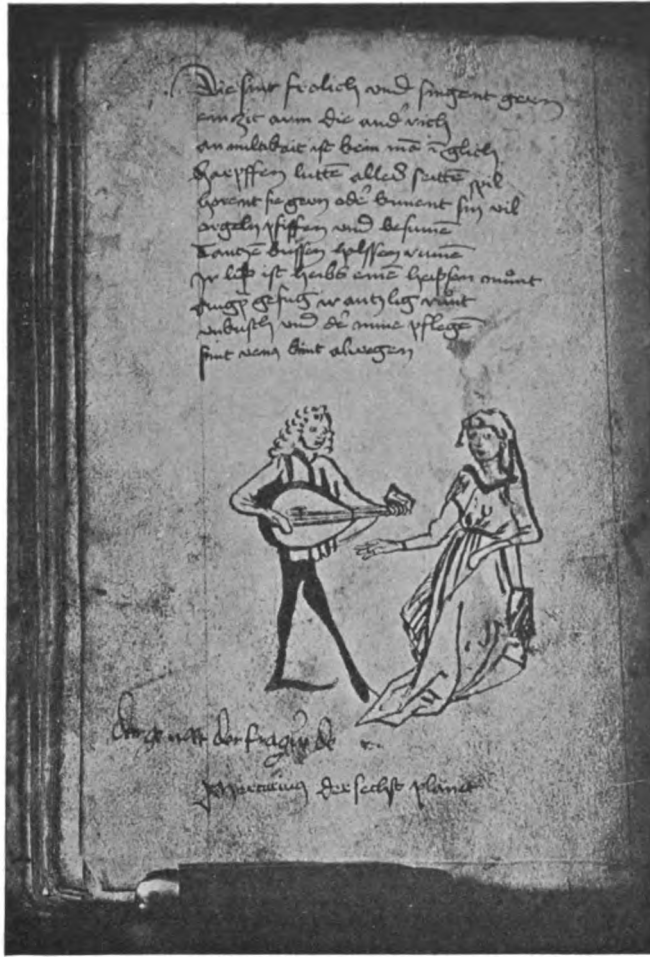 Die sint frolich vnd singent gern
ein zit arm die and' rich
an miltikait ist kein mā ir glich
Harpffen luttē alles seittē spil
horent sie gern ode' kunnent sin vil
orgeln pfiffen vnd besunē
Tantzē kussen helssen
ir lib ist hübs einē hüpsen mūnt
gefug ir antzlig runt
vnkusch vnd de' mine pflegē
sint venꝯ kint alwegen
der der frag de
Mercurius der sechst planet